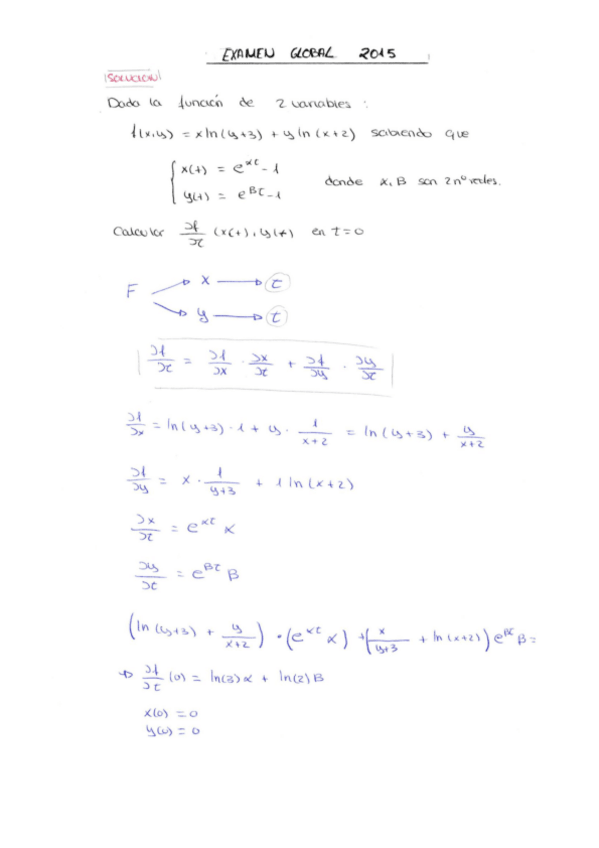 EXAMEN GLOBAL 2015
SOLUCIÓN
Dada la función de 2 variables :
f(x,y) = x ln(y+3) + y ln(x+2) sabiendo que
x(t) = e^{αt} - 1
y(t) = e^{βt} - 1
donde α, β son 2 nº reales.
Calcular ∂f/∂t (x(t), y(t)) en t=0
F → x → t
→ y → t
∂f/∂t = ∂f/∂x · ∂x/∂t + ∂f/∂y · ∂y/∂t
∂f/∂x = ln(y+3) · 1 + y · 1/(x+2) = ln(y+3) + y/(x+2)
∂f/∂y = x · 1/(y+3) + 1 ln(x+2)
∂x/∂t = e^{αt} α
∂y/∂t = e^{βt} β
(ln(y+3) + y/(x+2)) · (e^{αt} α) + (x/(y+3) + ln(x+2)) e^{βt} β =
⇒ ∂f/∂t (0) = ln(3)α + ln(2)β
x(0) = 0
y(0) = 0